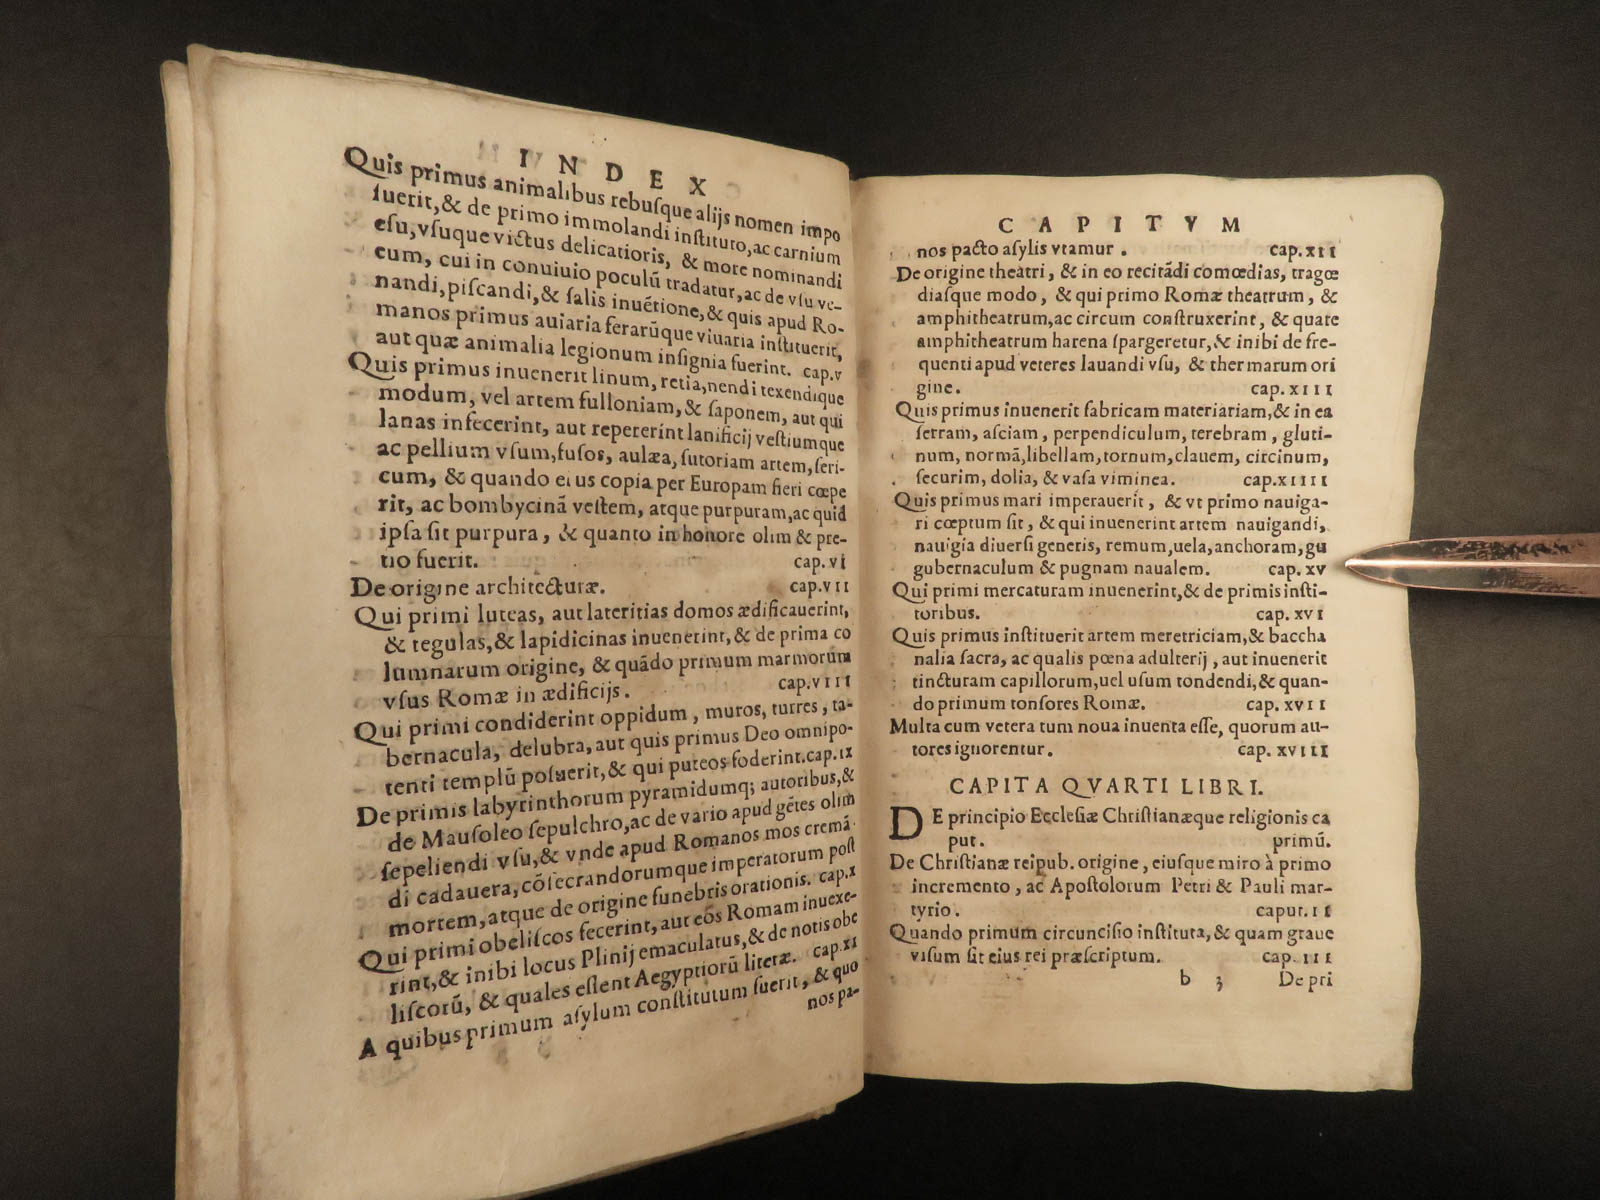 INDEX
Quis primus animalibus rebusque alijs nomen impo
suerit,& de primo immolandi instituto,ac carnium
esu,vsuque victus delicatioris, & more nominandi
cum, cui in conuiuio poculũ tradatur,ac de vsu ve-
nandi,piscandi,& salis inuẽtione,& quis apud Ro-
manos primus auiaria ferarũque viuaria instituerit,
aut quæ animalia legionum insignia fuerint. cap.v
Quis primus inuenerit linum, retia,nendi texendique
modum, vel artem fulloniam,& saponem, aut qui
lanas infecerint, aut repererint lanificij vestiumque
ac pellium vsum,fusos, aulæa, sutoriam artem,seri-
cum, & quando eius copia per Europam fieri cœpe
rit, ac bombycinã vestem, atque purpuram,ac quid
ipsa sit purpura, & quanto in honore olim & pre-
tio fuerit. cap.vi
De origine architecturæ. cap.VII
Qui primi luteas, aut lateritias domos ædificauerint,
& tegulas,& lapidicinas inuenerint,& de prima co
lumnarum origine, & quãdo primum marmorum
vsus Romæ in ædificijs. cap.VIII
Qui primi condiderint oppidum, muros, turres, ta-
bernacula, delubra,aut quis primus Deo omnipo-
tenti templũ posuerit,& qui puteos foderint.cap.IX
De primis labyrinthorum pyramidumq; autoribus,&
de Mausoleo sepulchro,ac de vario apud gẽtes olim
sepeliendi vsu,& vnde apud Romanos mos cremã-
di cadauera,cõsecrandorumque imperatorum post
mortem,atque de origine funebris orationis. cap.X
Qui primi obeliscos fecerint,aut eos Romam inuexe-
rint,& inibi locus Plinij emaculatus,& de notis obe
liscorũ, & quales essent Aegyptiorũ literæ. cap.XI
A quibus primum asylum constitutum fuerit, & quo
nos pa-
CAPITVM
nos pacto asylis vtamur. cap.XII
De origine theatri, & in eo recitãdi comœdias, tragœ
diasque modo, & qui primo Romæ theatrum, &
amphitheatrum,ac circum construxerint, & quare
amphitheatrum harena spargeretur,& inibi de fre-
quenti apud veteres lauandi vsu, & thermarum ori
gine. cap.XIII
Quis primus inuenerit fabricam materiariam,& in ea
serram, asciam, perpendiculum, terebram, gluti-
num, normã,libellam,tornum,clauem, circinum,
securim, dolia, & vasa viminea. cap.XIIII
Quis primus mari imperauerit, & vt primo nauiga-
ri cœptum sit, & qui inuenerint artem nauigandi,
nauigia diuersi generis, remum,uela,anchoram,gu
gubernaculum & pugnam naualem. cap.XV
Qui primi mercaturam inuenerint,& de primis insti-
toribus. cap.XVI
Quis primus instituerit artem meretriciam,& baccha
nalia sacra, ac qualis pœna adulterij, aut inuenerit
tincturam capillorum,uel usum tondendi,& quan-
do primum tonsores Romæ. cap.XVII
Multa cum vetera tum noua inuenta esse, quorum au-
tores ignorentur. cap.XVIII
CAPITA QVARTI LIBRI.
DE principio Ecclesiæ Christianæque religionis ca
put. primũ.
De Christianæ reipub. origine, eiusque miro à primo
incremento, ac Apostolorum Petri & Pauli mar-
tyrio. caput.II
Quando primum circuncisio instituta,& quam graue
visum sit eius rei præscriptum. cap.III
b 3 De pri